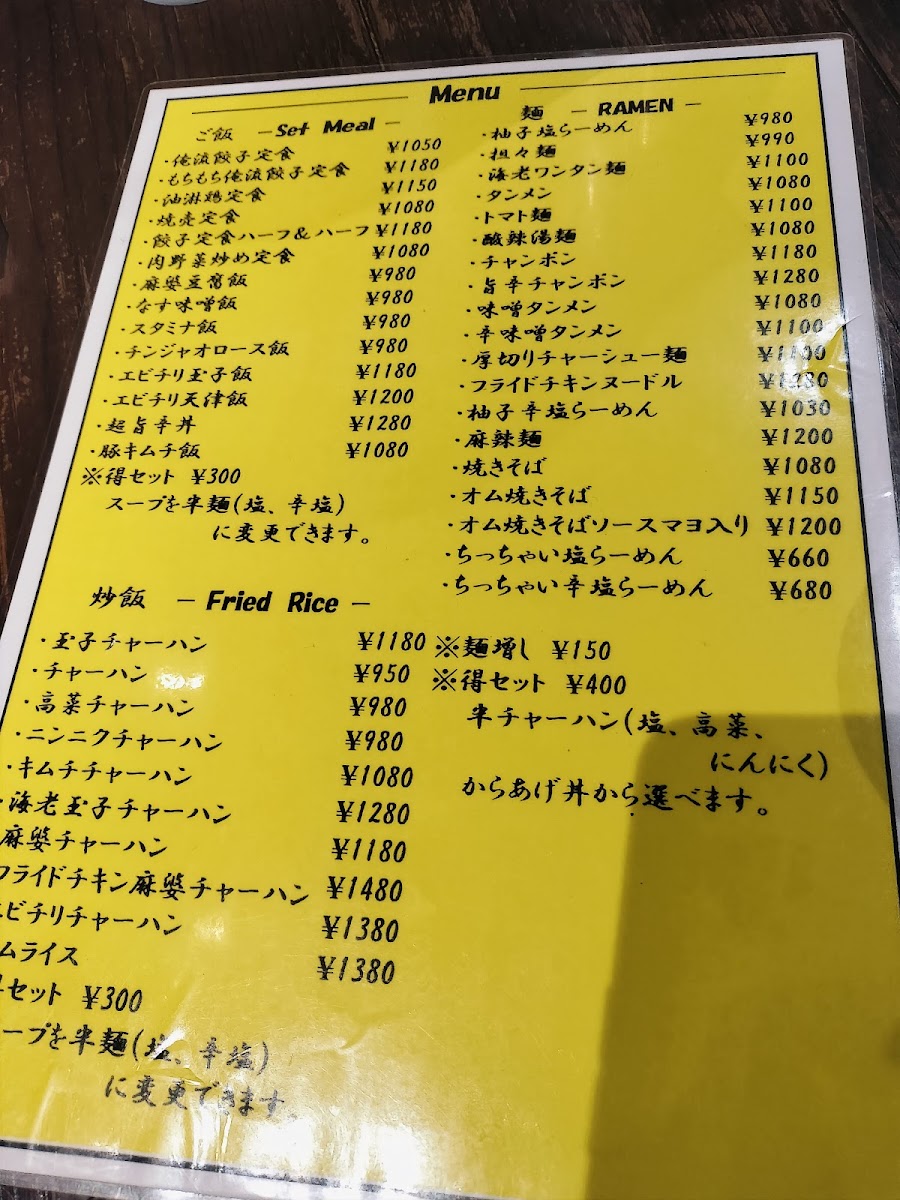 Menu
ご飯 －Set Meal－
・俺流餃子定食 ¥1050
・もちもち俺流餃子定食 ¥1180
・油淋鶏定食 ¥1150
・焼売定食 ¥1080
・餃子定食ハーフ＆ハーフ ¥1180
・肉野菜炒め定食 ¥1080
・麻婆豆腐飯 ¥980
・なす味噌飯 ¥980
・スタミナ飯 ¥980
・チンジャオロース飯 ¥980
・エビチリ玉子飯 ¥1180
・エビチリ天津飯 ¥1200
・超旨辛丼 ¥1280
・豚キムチ飯 ¥1080
※得セット ¥300
スープを半麺(塩、辛塩)
に変更できます。
炒飯 －Fried Rice－
・玉子チャーハン ¥1180
・チャーハン ¥950
・高菜チャーハン ¥980
・ニンニクチャーハン ¥980
・キムチチャーハン ¥1080
・海老玉子チャーハン ¥1280
麻婆チャーハン ¥1180
フライドチキン麻婆チャーハン ¥1480
エビチリチャーハン ¥1380
ムライス ¥1380
セット ¥300
ープを半麺(塩、辛塩)
に変更できます。
麺 －RAMEN－
・柚子塩らーめん ¥980
・担々麺 ¥990
・海老ワンタン麺 ¥1100
・タンメン ¥1080
・トマト麺 ¥1100
・酸辣湯麺 ¥1080
・チャンポン ¥1180
・旨辛チャンポン ¥1280
・味噌タンメン ¥1080
・辛味噌タンメン ¥1100
・厚切りチャーシュー麺 ¥1100
・フライドチキンヌードル ¥1280
・柚子辛塩らーめん ¥1030
・麻辣麺 ¥1200
・焼きそば ¥1080
・オム焼きそば ¥1150
・オム焼きそばソースマヨ入り ¥1200
・ちっちゃい塩らーめん ¥660
・ちっちゃい辛塩らーめん ¥680
※麺増し ¥150
※得セット ¥400
半チャーハン(塩、高菜、
にんにく)
からあげ丼から選べます。